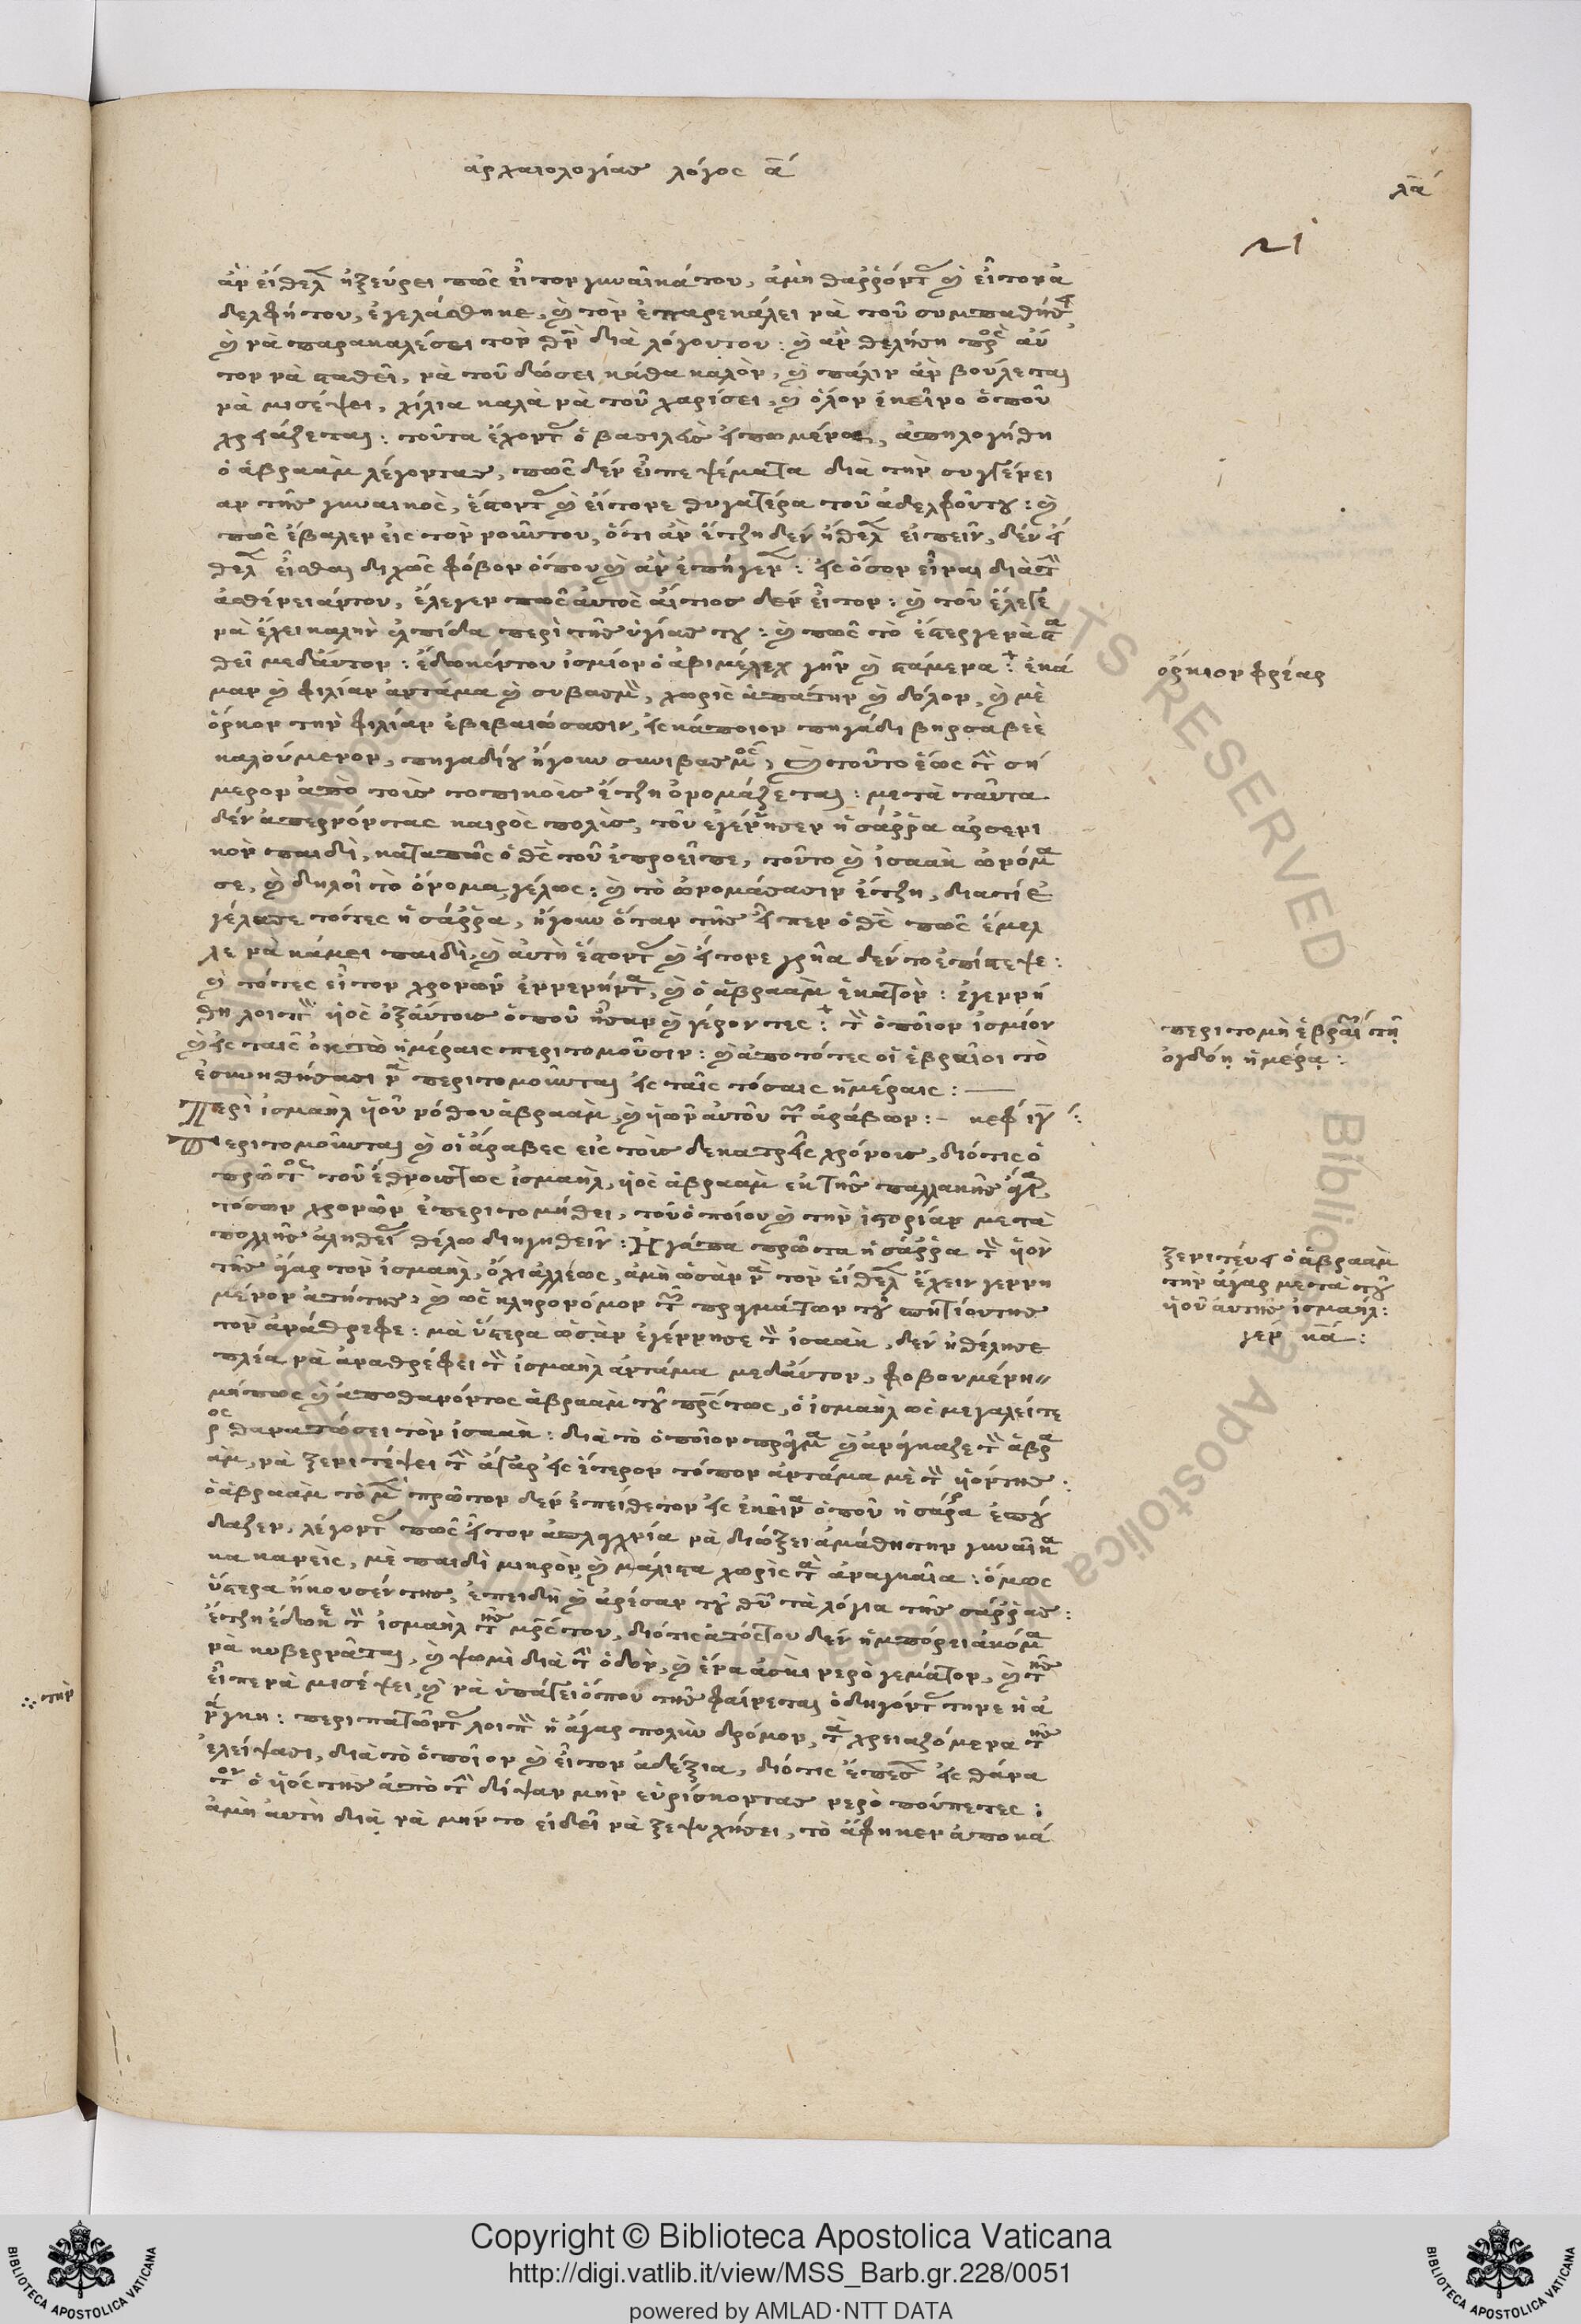 ἀρχαιολογίας λόγος ᾱ´
λᾱ´
21
ἂν εἴθελ ἠξεύρει πῶς εἶτον γυναῖκάτου, ἀμὴ θαῤῥόντ καὶ εἶτον ἀ
δελφήτου, ἐγελάσθηκε, καὶ τὸν ἐπαρεκάλει νὰ τοῦ συμπαθήσ,
καὶ νὰ παρακαλέσει τὸν θν διὰ λόγουτου: καὶ ἂν θελήσῃ πρὸς αὐ
τον νὰ σταθεῖ, νὰ τοῦ δώσει κάθα καλὸν, καὶ πάλιν ἂν βούλεται
νὰ μισέψει, χίλια καλὰ νὰ τοῦ χαρίσει, καὶ ὅλον ἐκεῖνο ὁποῦ
χρειάζεται: τοῦτα ἔχοντ ὁ βασιλεὺς εἰπωμένα, ἀπηλογήθη
ὁ ἁβραὰμ λέγοντας, πῶς δέν εἶπε ψέματα διὰ τὴν συγγένει
αν τῆς γυναικὸς, ἔστοντ καὶ εἴτονε θυγατέρα τοῦ ἀδελφοῦτου: καὶ
πῶς ἔβαλεν εἰς τὸν νοῦντου, ὅτι ἂν ἔτζη δέν ἤθελ εἰπεῖν, δέν εἴ
θελ εἶσθαι διχῶς φόβον ὁπου καὶ ἂν ἐπήγεν: εἰς ὅσον εἶναι διὰ τὴν
ἀσθένειάντου, ἔλεγεν πῶς αὐτὸς αἴτιος δεν εἶτον: καὶ τοῦ ἔλεγε
νὰ ἔχει καλὴν ἐλπίδα περὶ τῆς ὑγίας του: καὶ πῶς τὸ ἔστεργε νὰ στα
θεῖ μεδαύτον: ἔδωκέντου ἰσμίον ὁ ἀβιμέλεχ γῆν καὶ στάμενα: ἐκά
μαν καὶ φιλίαν ἀντάμα καὶ συβασμ, χωρὶς ἀπάτην καὶ δόλον, καὶ μὲ
ὅρκον τὴν φιλίαν ἐβεβαιώσασιν, εἰς κάποιον πηγάδι βηρσαβεὲ
καλούμενον, πηγαδίου ἤγουν συνιβασμὸς, καὶ τοῦτο ἕως τὴν σή
μερον ἀπὸ τοὺς τοπικοὺς ἔτζη ὀνομάζεται: μετὰ ταῦτα
δέν ἀπερνόντας καιρὸς πολὺς, τοῦ ἐγέννησεν ἡ σάῤῥα ἀρσενι
κὸν παιδὶ, καταπῶς ὁ θς τοῦ ἐπροεῖπε, τοῦτο καὶ ἰσαὰκ ὠνόμα
σε, καὶ δηλοῖ τὸ ὄνομα γέλως: καὶ τὸ ὠνομάσασιν ἔτζη, διατί ἐ
γέλασε τότες ἡ σάῤῥα, ἤγουν ὅταν τῆς εἶπεν ὁ θς πῶς ἔμελ
λε νὰ κάμει παιδὶ, καὶ αὐτὴ ἔστοντ καὶ εἴτονε γρῆα δέν τοεπίστεψε:
καὶ τότες εἶτον χρονῶν ἐννενήντα, καὶ ὁ ἁβραὰμ ἑκατὸν: ἐγεννή
θη λοιπὸν υἱὸς ὀξαύτους ὁποῦ ἦσαν καὶ γέροντες: τὸν ὁποῖον ἰσμίον
καὶ εἰς ταῖς ὀκτὼ ἡμέραις περιτομοῦσιν: καὶ ἀποτότες οἱ ἑβραῖοι τὸ
ἐσυνηθήσασι νὰ περιτομοῦνται εἰς ταῖς τόσαις ἡμέραις:
Περὶ ἰσμαὴλ υἱοῦ νόθου ἁβραὰμ, καὶ υἱῶν αὐτοῦ τῶν ἀράβων: κεφ ιγ´:
Περιτομοῦνται καὶ οἱ ἄραβες εἰς τοὺς δεκατρεῖς χρόνους, διότις ὁ
πρῶτος τοῦ ἔθνουστως ἰσμαὴλ, υἱὸς ἁβραὰμ ἐκ τῆς παλλακῆς,
τόσων χρονῶν ἐπεριτομήθει, τοῦ ὁποίου καὶ τὴν ἱστορίαν μετὰ
πολλῆς ἀληθεί θέλω διηγηθεῖν: Ηγάπα πρῶτα ἡ σάῤῥα τὸν υἱὸν
τῆς ἄγαρ τὸν ἰσμαὴλ, ὄχι ἀλλέως, ἀμὴ ὡσὰν νὰ τὸν εἴθελ ἔχειν γεννη
μένον ἀπήτης, καὶ ὡς κληρονόμον τῶν πραγμάτων τοῦ
τὸν ἀνάθρεφε: μὰ ὕστερα ὡσὰν ἐγέννησε τὸν ἰσαὰκ, δεν ἠθέλησε
πλέα νὰ ἀναθρέφει τὸν ἰσμαὴλ ἀντάμα μεδαύτον, φοβουμένη
μήπως καὶ ἀποθανόντος ἁβραὰμ τοῦ πρςτως, ὁ ἰσμαὴλ ὡς μεγαλείτε
ρος θανατώσει τὸν ἰσαὰκ: διὰ τὸ ὁποῖον πρᾶγμα καὶ ἀνάγκαζε τὸν ἁβρα
ὰμ, νὰ ξενιτέψει τὴν ἄγαρ εἰς ἕτερον τόπον ἀντάμα μὲ τὸν υἱόντης:
ὁ ἁβραὰμ τὸ μὲν πρῶτον δεν ἐπείθετον εἰς ἐκεῖνα ὁποῦ ἡ σάῤῥα ἐσπού
δαζεν, λέγοντ πῶς εἶτον ἀπανθρωπία νὰ διώξει ἀμάθητην γυναῖκα
κανανεὶς, μὲ παιδὶ μικρὸν, καὶ μάλιστα χωρὶς τὰ ἀναγκαῖα: ὅμως
ὕστερα ἤκουσέν της, ἐπειδὴ καὶ ἀρέσαν τοῦ θῦ τὰ λόγια τῆς σάῤῥας:
ἔτζη ἔδωκε τὸν ἰσμαὴλ τῆς μρςτου, διότις ἀπόςτου δεν ἠμπόρει ἀκόμα
νὰ κυβερνᾶται, καὶ ψωμὶ διὰ τὴν ὁδὸν, καὶ ἕνα ἀσκὶ νερὸ γεμάτον, καὶ τῆς
εἶπε νὰ μισέψει, καὶ νὰ ὑπάγει ὅπου τῆς φαίνεται ὁδηγόντ τηνε ἡ ἀ
νάγκη: περιπατῶντ λοιπὸν ἡ ἄγαρ πολὺν δρόμον, τὰ χρειαζόμενα τῆς
ἐλείψασι, διὰ τὸ ὁποῖον καὶ εἶτον ἀδέξια, διότις ἔπεσ εἰς θάνα
τον ὁ υἱόςτης ἀπὸ τὴν δίψαν μὴν εὑρίσκοντας νερὸ πούπετες:
ἀμὴ αὐτὴ διὰ νὰ μήν το εἰδεῖ νὰ ξεψυχήσει, τὸ ἄφηκεν ἀποκά
ὅρκιον φρέαρ
περιτομὴ ἑβραϊ τῇ
ὀγδόῃ ἡμέρᾳ:
ξενιτεύει ὁ ἁβραὰμ
τὴν ἄγαρ μετὰ τοῦ
υἱοῦ αὐτῆς ἰσμαήλ:
γεν κᾱ´:
τὴν
Copyright © Biblioteca Apostolica Vaticana
http://digi.vatlib.it/view/MSS_Barb.gr.228/0051
powered by AMLAD·NTT DATA
BIBLIOTECA APOSTOLICA VATICANA
BIBLIOTECA APOSTOLICA VATICANA